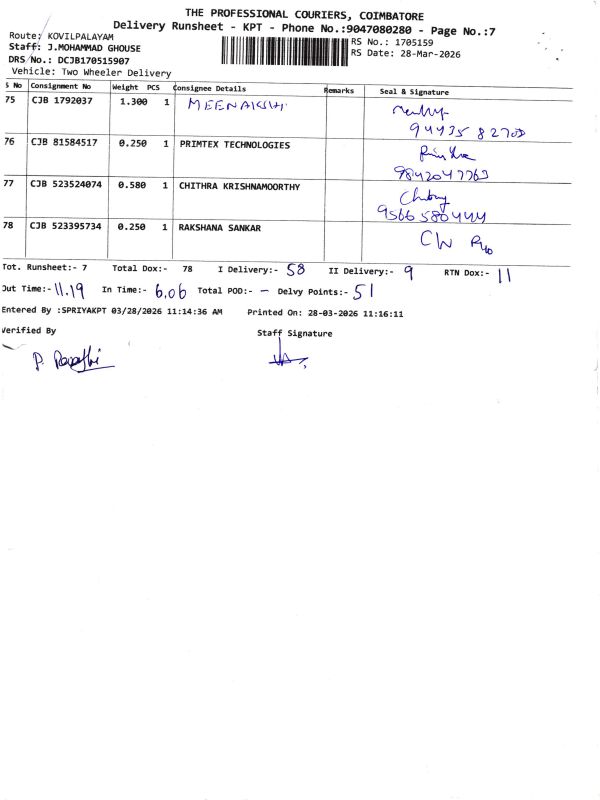 THE PROFESSIONAL COURIERS, COIMBATORE
Delivery Runsheet - KPT - Phone No.:9047080280 - Page No.:7
Route: KOVILPALAYAM
RS No.: 1705159
Staff: J.MOHAMMAD GHOUSE
RS Date: 28-Mar-2026
DRS No.: DCJB170515907
Vehicle: Two Wheeler Delivery
S No Consignment No Weight PCS Consignee Details Remarks Seal & Signature
75 CJB 1792037 1.300 1 MEENAKSHI
76 CJB 81584517 0.250 1 PRIMTEX TECHNOLOGIES
9842047763
77 CJB 523524074 0.580 1 CHITHRA KRISHNAMOORTHY
9566580444
78 CJB 523395734 0.250 1 RAKSHANA SANKAR
Tot. Runsheet:- 7 Total Dox:- 78 I Delivery:- 58 II Delivery:- 9 RTN Dox:- 11
Out Time:- 11.19 In Time:- 6.06 Total POD:- - Delvy Points:- 51
Entered By :SPRIYAKPT 03/28/2026 11:14:36 AM Printed On: 28-03-2026 11:16:11
Verified By Staff Signature